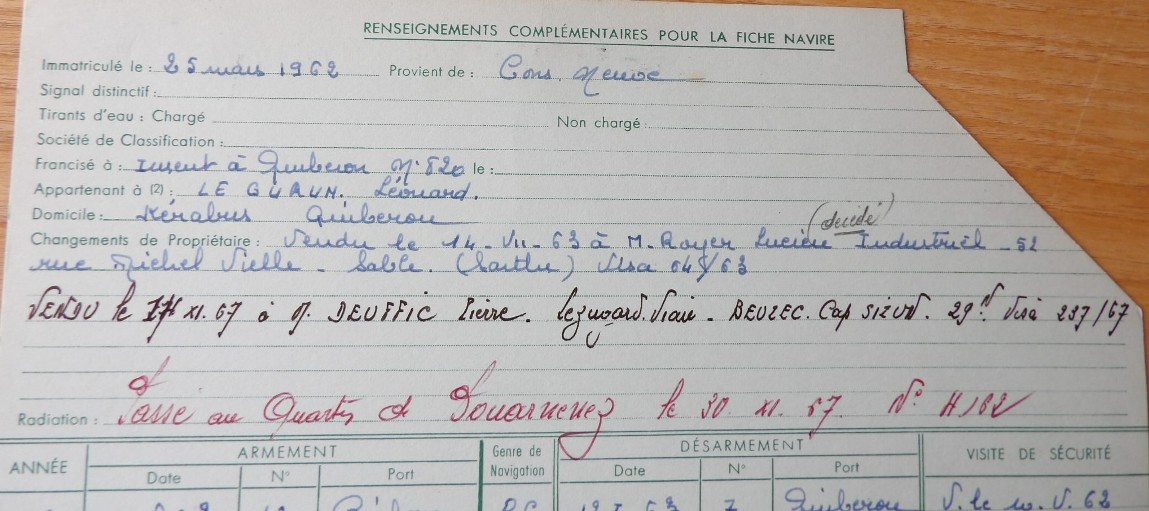 RENSEIGNEMENTS COMPLÉMENTAIRES POUR LA FICHE NAVIRE
Immatriculé le : 25 mars 1962 Provient de : Cons. Neuve
Signal distinctif :
Tirants d'eau : Chargé Non chargé :
Société de Classification :
Francisé à : Inscrit à Quiberon N° 820 le :
Appartenant à (2) : LE GURUN. Léonard.
Domicile : Kérabus Quiberon
(décédé)
Changements de Propriétaire : Vendu le 14-VII-63 à M. Royer Lucien Industriel - 52
rue Michel Vielle - Sablé. (Sarthe) Visa 648/63
VENDU le XI. 67 à M. DEUFFIC Pierre. BEUZEC. Cap SIZUN. 29N Visa 237/67
Radiation : Passe au Quartier de Douarnenez le 30. XI. 67. N° H162
ANNÉE ARMEMENT Genre de Navigation DÉSARMEMENT VISITE DE SÉCURITÉ
Date N° Port Date N° Port
Quiberon V. le 62